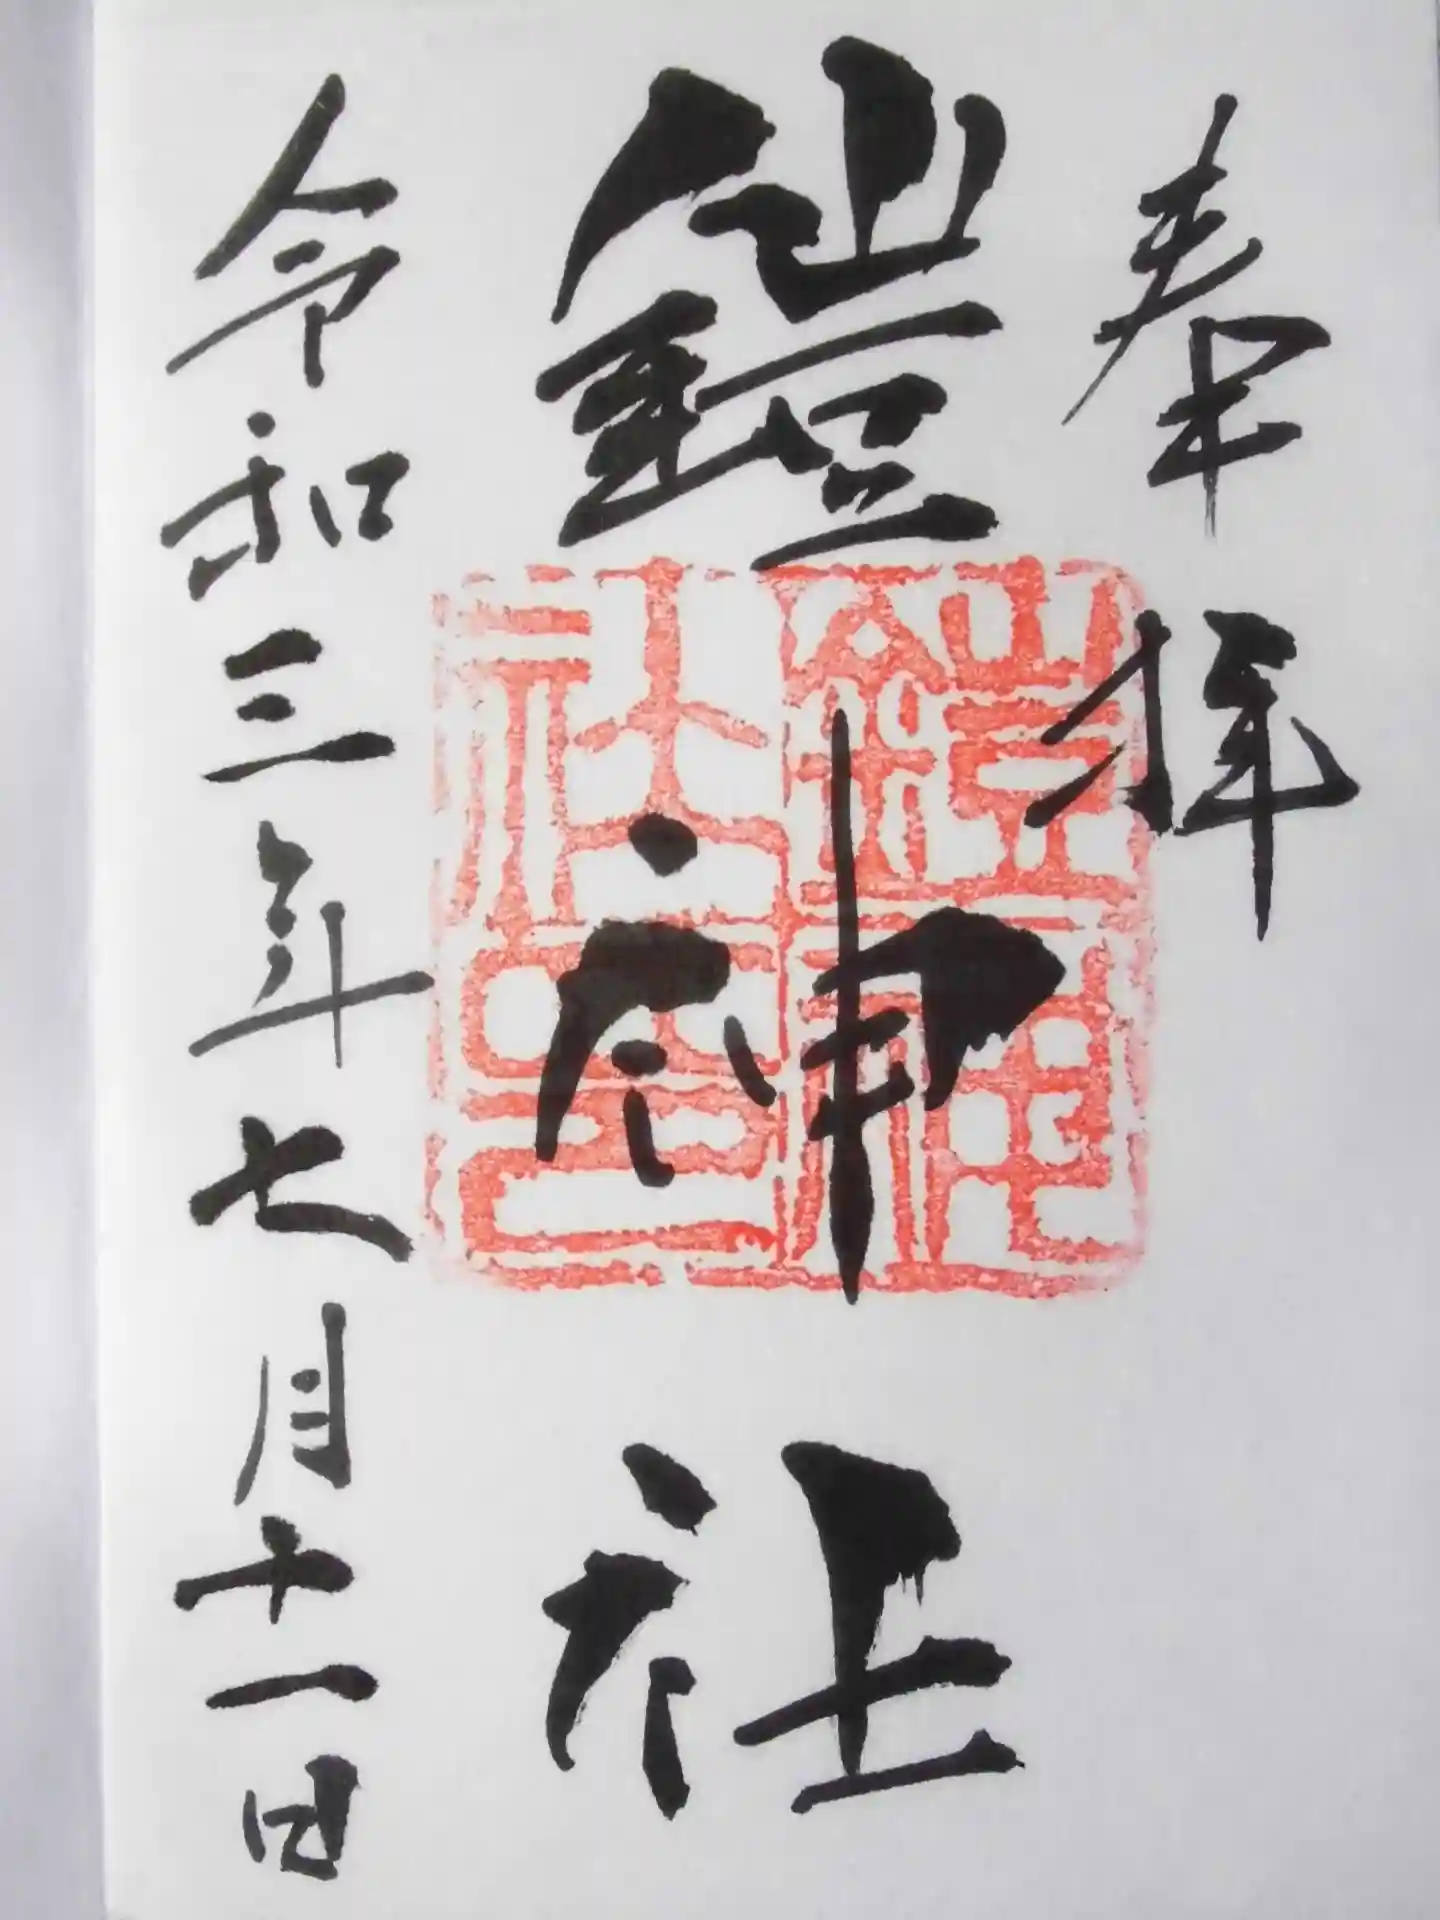 奉拝
鎧神社
鎧神社之印
令和三年七月十一日